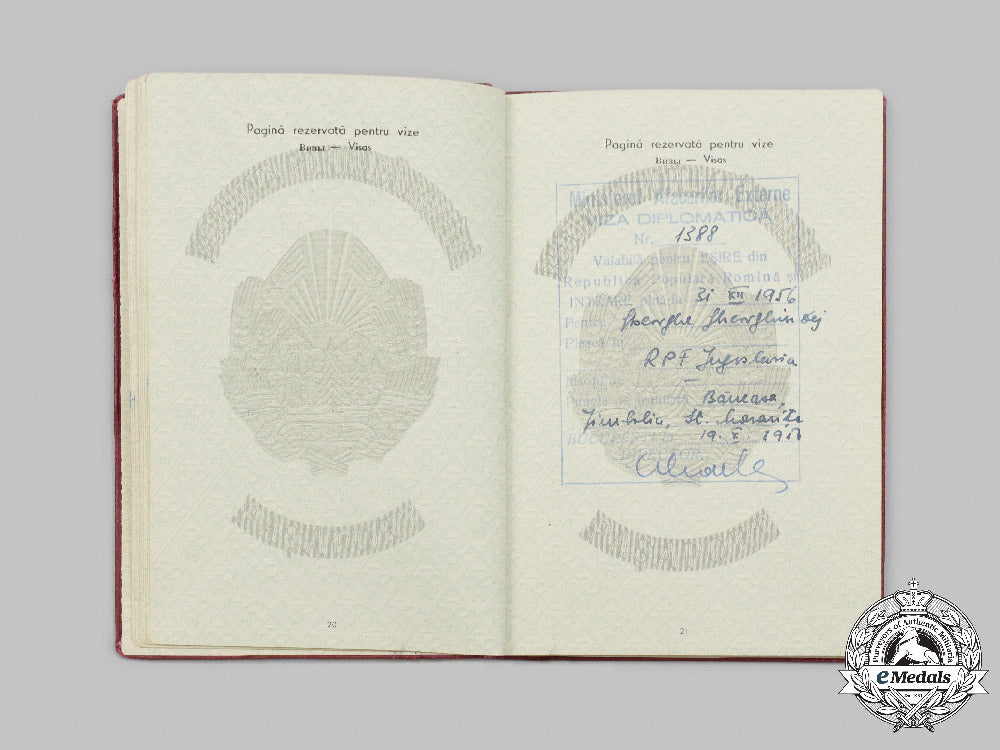 Pagină rezervată pentru vize
Визы — Visas
20
Pagină rezervată pentru vize
Визы — Visas
Ministerul Afacerilor Externe
VIZA DIPLOMATICĂ
Nr. 1388
Valabilă pentru IEȘIRE din
Republica Populară Romînă și
INTRARE pînă la 31 XII 1956
Pentru Gheorghe Gheorghiu Dej
Pleacă în
RPF Jugoslavia
Puncte de Băneasa,
Jimbolia, St. Moravița
BUCUREȘTI 19. X. 1956
DIRECTOR,
21
Purveyors of Authentic Militaria
eMedals